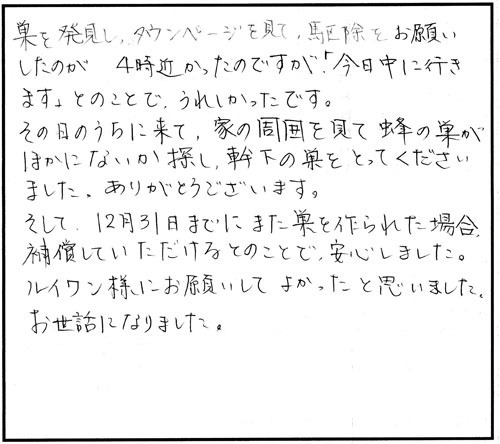 巣を発見し、タウンページを見て、駆除をお願い
したのが 4時近かったのですが、「今日中に行き
ます」とのことで、うれしかったです。
その日のうちに来て、家の周囲を見て蜂の巣が
ほかにないか探し、軒下の巣をとってください
ました。ありがとうございます。
そして、12月31日までにまた巣を作られた場合、
補償していただけるとのことで、安心しました。
ルイワン様にお願いしてよかったと思いました。
お世話になりました。